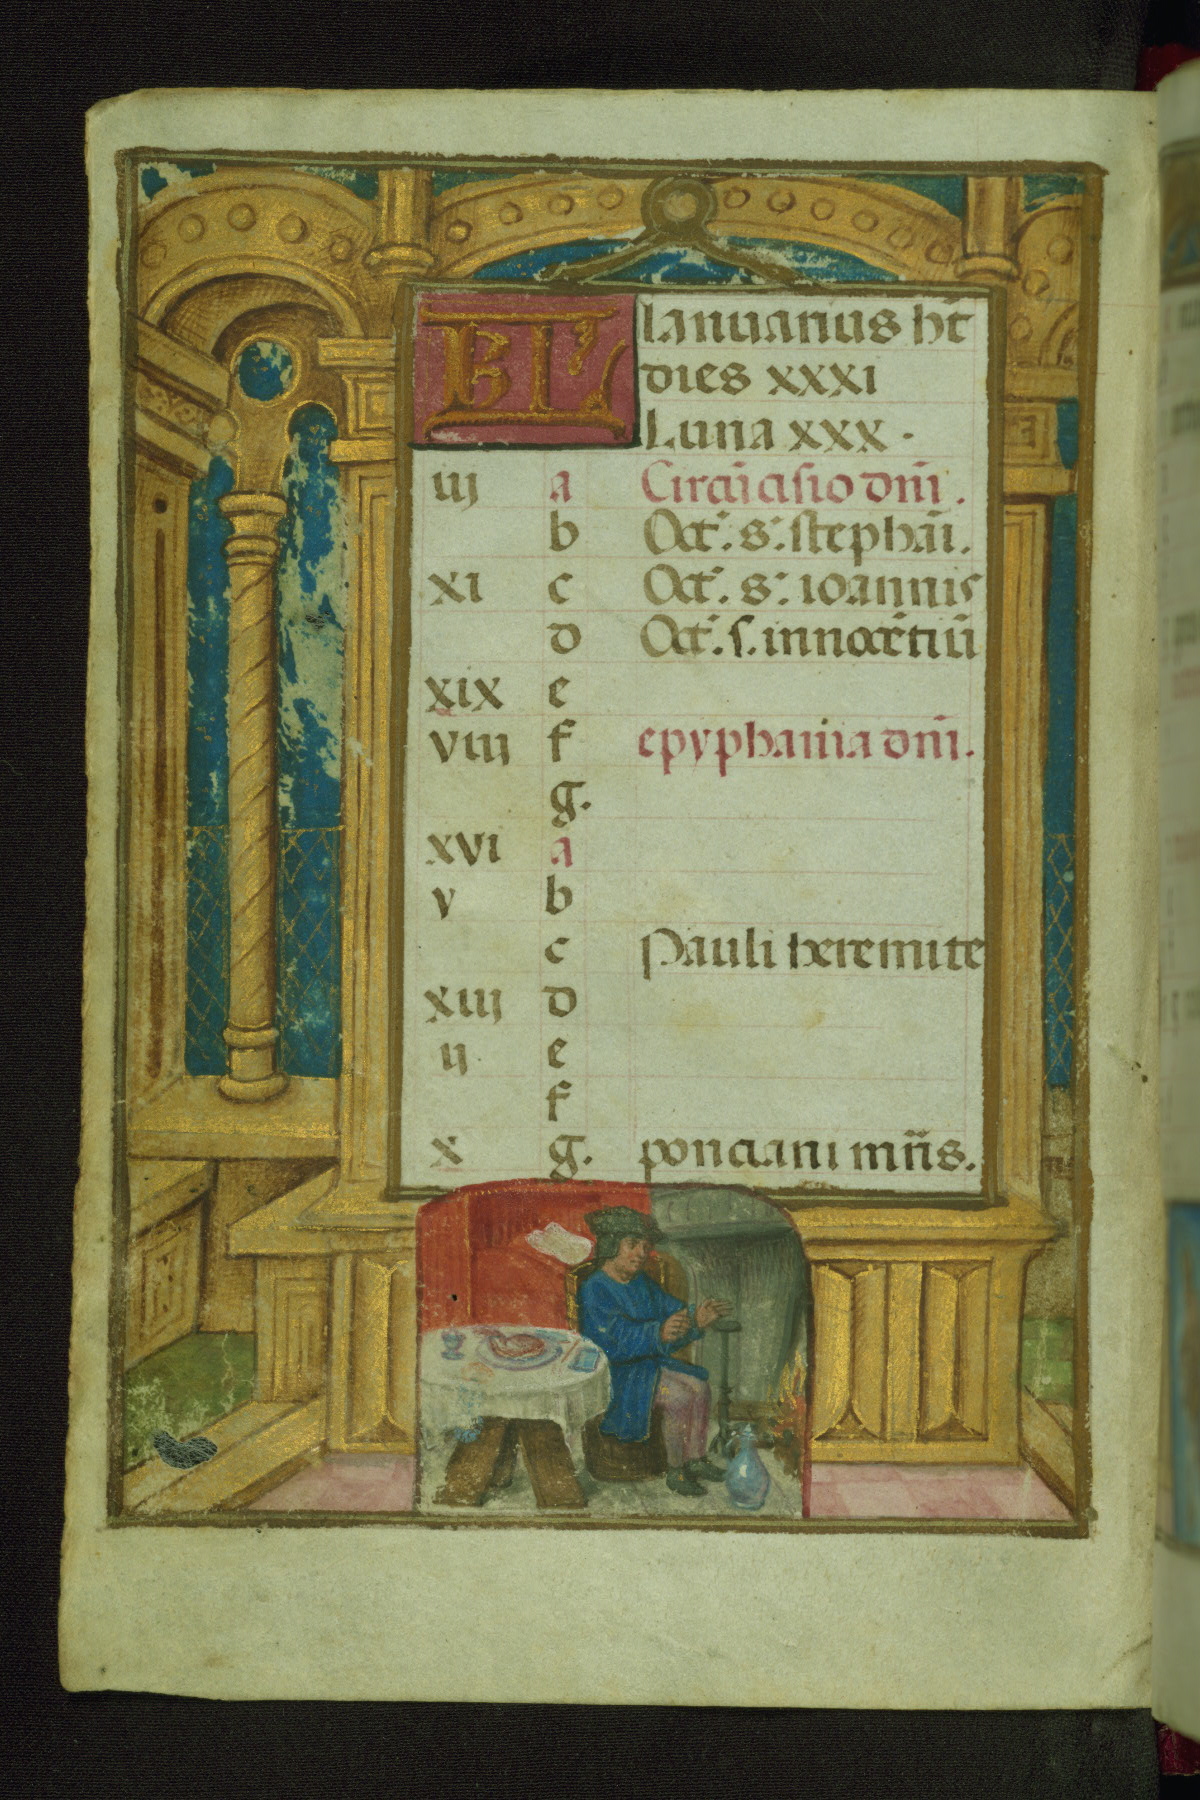 KL Ianuarius ht̄
dies xxxi
Luna xxx.
iij a Circūcisio dn̄i.
b Oct̄. s. stephāi.
xi c Oct̄. s. ioannis
d Oct̄. s. innocētiū
xix e
viij f epyphania dn̄i.
g.
xvi a
v b
c Pauli heremite
xiij d
ij e
f
x g. ponciani mr̄is.